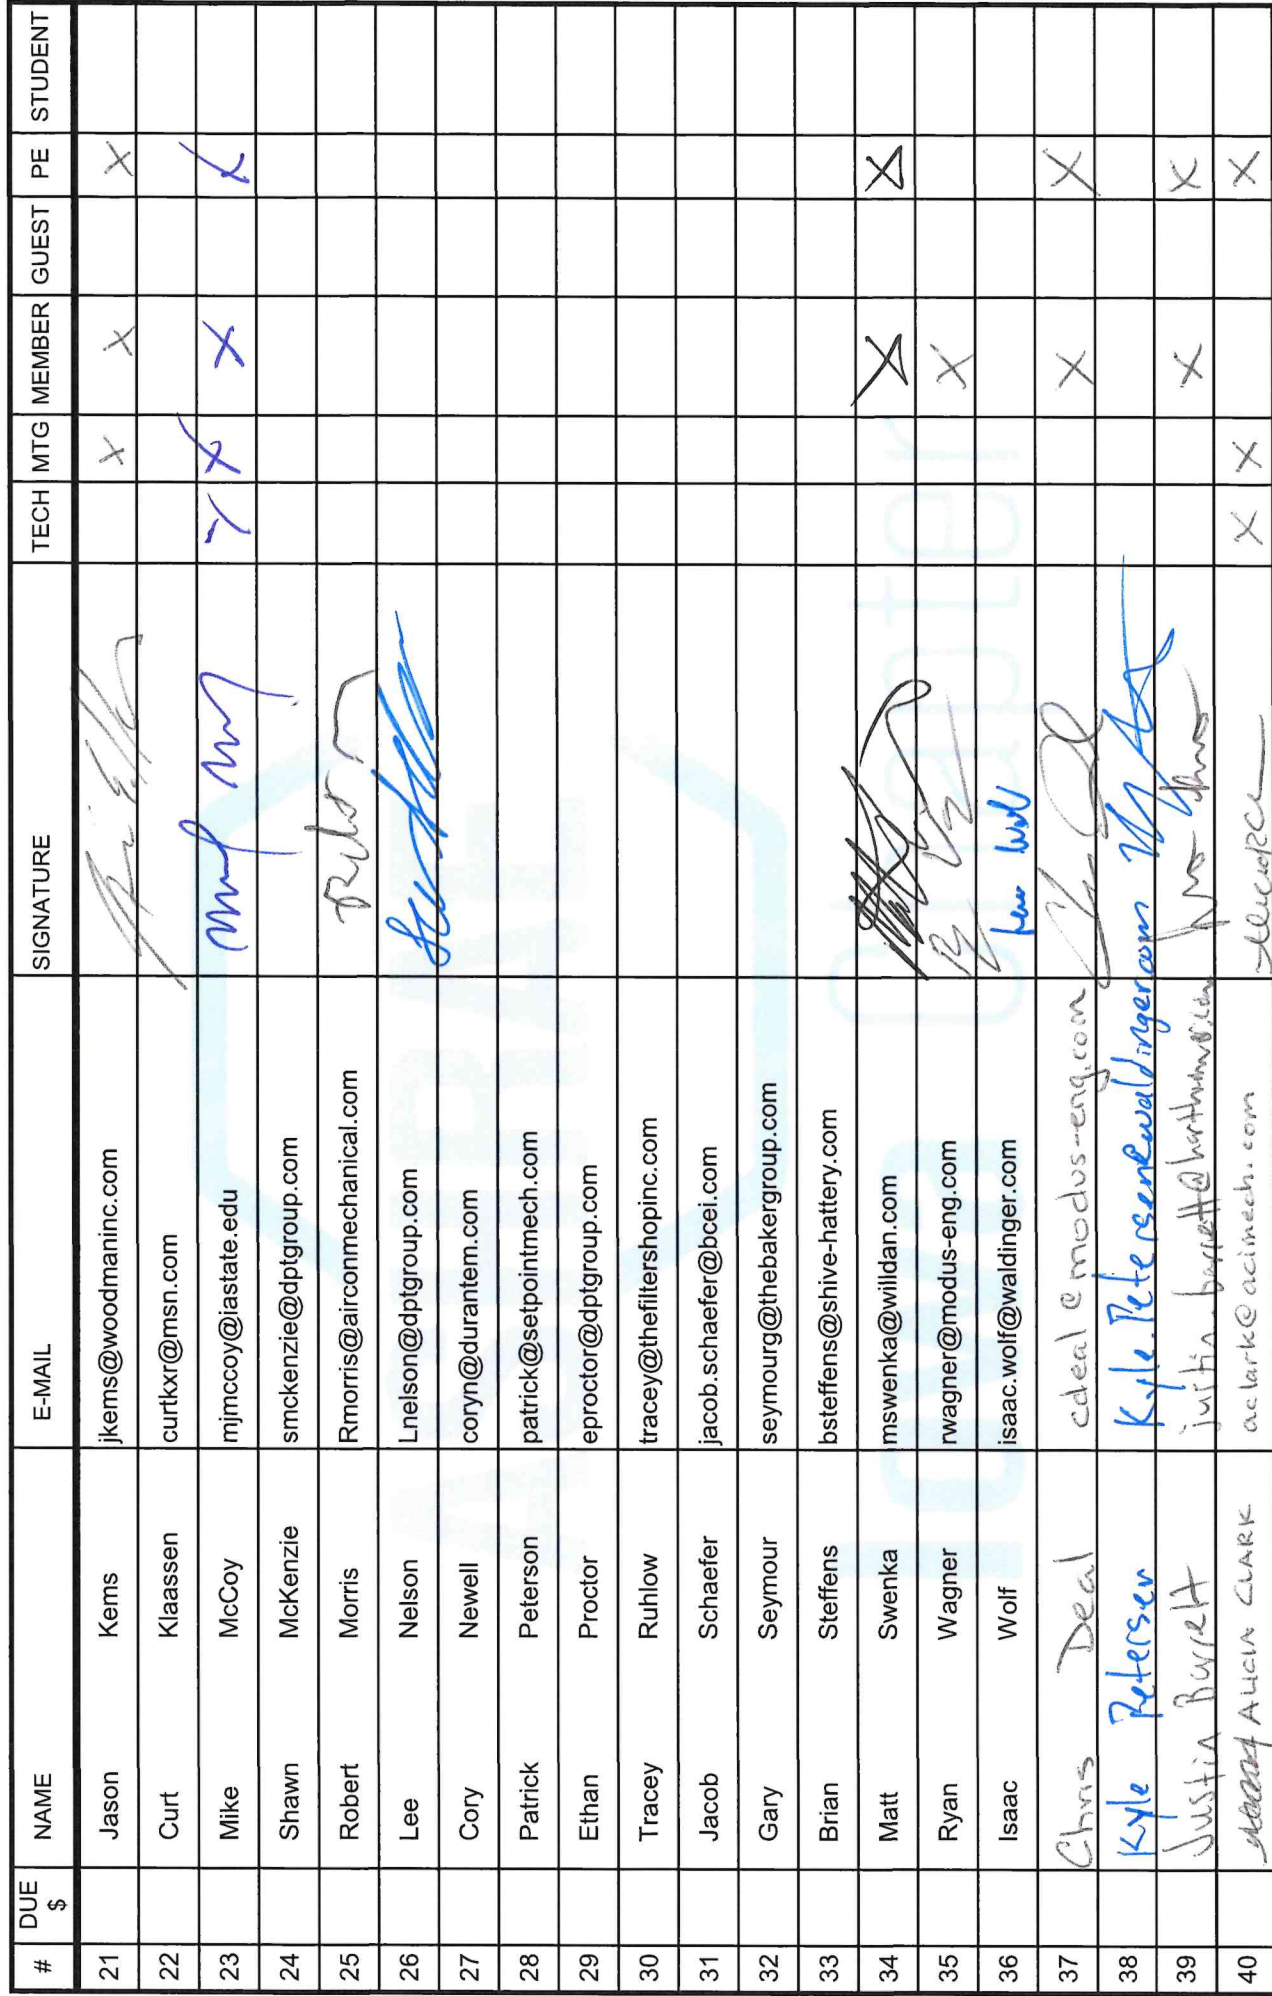 # DUE $ NAME E-MAIL SIGNATURE TECH MTG MEMBER GUEST PE STUDENT
21 Jason Kems jkems@woodmaninc.com X X X
22 Curt Klaassen curtkxr@msn.com
23 Mike McCoy mjmccoy@iastate.edu X X X X
24 Shawn McKenzie smckenzie@dptgroup.com
25 Robert Morris Rmorris@airconmechanical.com
26 Lee Nelson Lnelson@dptgroup.com
27 Cory Newell coryn@durantem.com
28 Patrick Peterson patrick@setpointmech.com
29 Ethan Proctor eproctor@dptgroup.com
30 Tracey Ruhlow tracey@thefiltershopinc.com
31 Jacob Schaefer jacob.schaefer@bcei.com
32 Gary Seymour seymourg@thebakergroup.com
33 Brian Steffens bsteffens@shive-hattery.com
34 Matt Swenka mswenka@willdan.com X X
35 Ryan Wagner rwagner@modus-eng.com X
36 Isaac Wolf isaac.wolf@waldinger.com
37 Chris Deal cdeal@modus-eng.com X X
38 Kyle Petersen Kyle.Petersen@waldinger.com
39 Justin X X
40 ALICIA CLARK aclark@acimech.com X X X
ASHRAE
Iowa Chapter